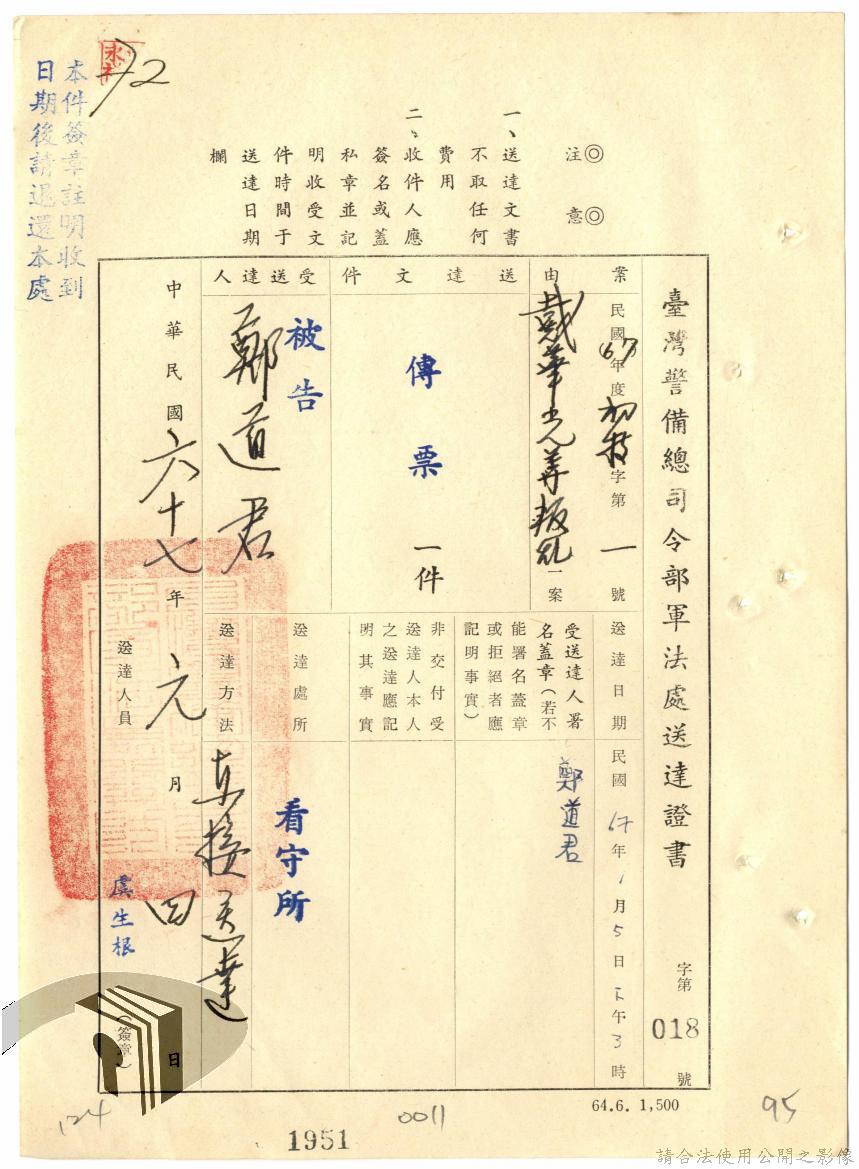 臺灣警備總司令部軍法處送達證書
字第018號
案由
民國(67)年度初技字第一號
戴華光等叛乱一案
送達文件
傳票一件
受送達人
被告
鄭道君
送達日期
民國67年1月5日下午3時
受送達人署
名蓋章(若不
能署名蓋章
或拒絕者應
記明事實)
鄭道君
非交付受
送達人本人
之送達應記
明其事實
送達處所
看守所
送達方法
直接送達
中華民國六十七年元月四日
送達人員
虞生根
(簽章)
◎注意◎
一、送達文書
不取任何
費用
二、收件人應
簽名或蓋
私章並記
明收受文
件時間于
送達日期
欄
本件簽章註明收到
日期後請退還本處
72
64.6. 1,500
124
0011
95
1951
請合法使用公開之影像